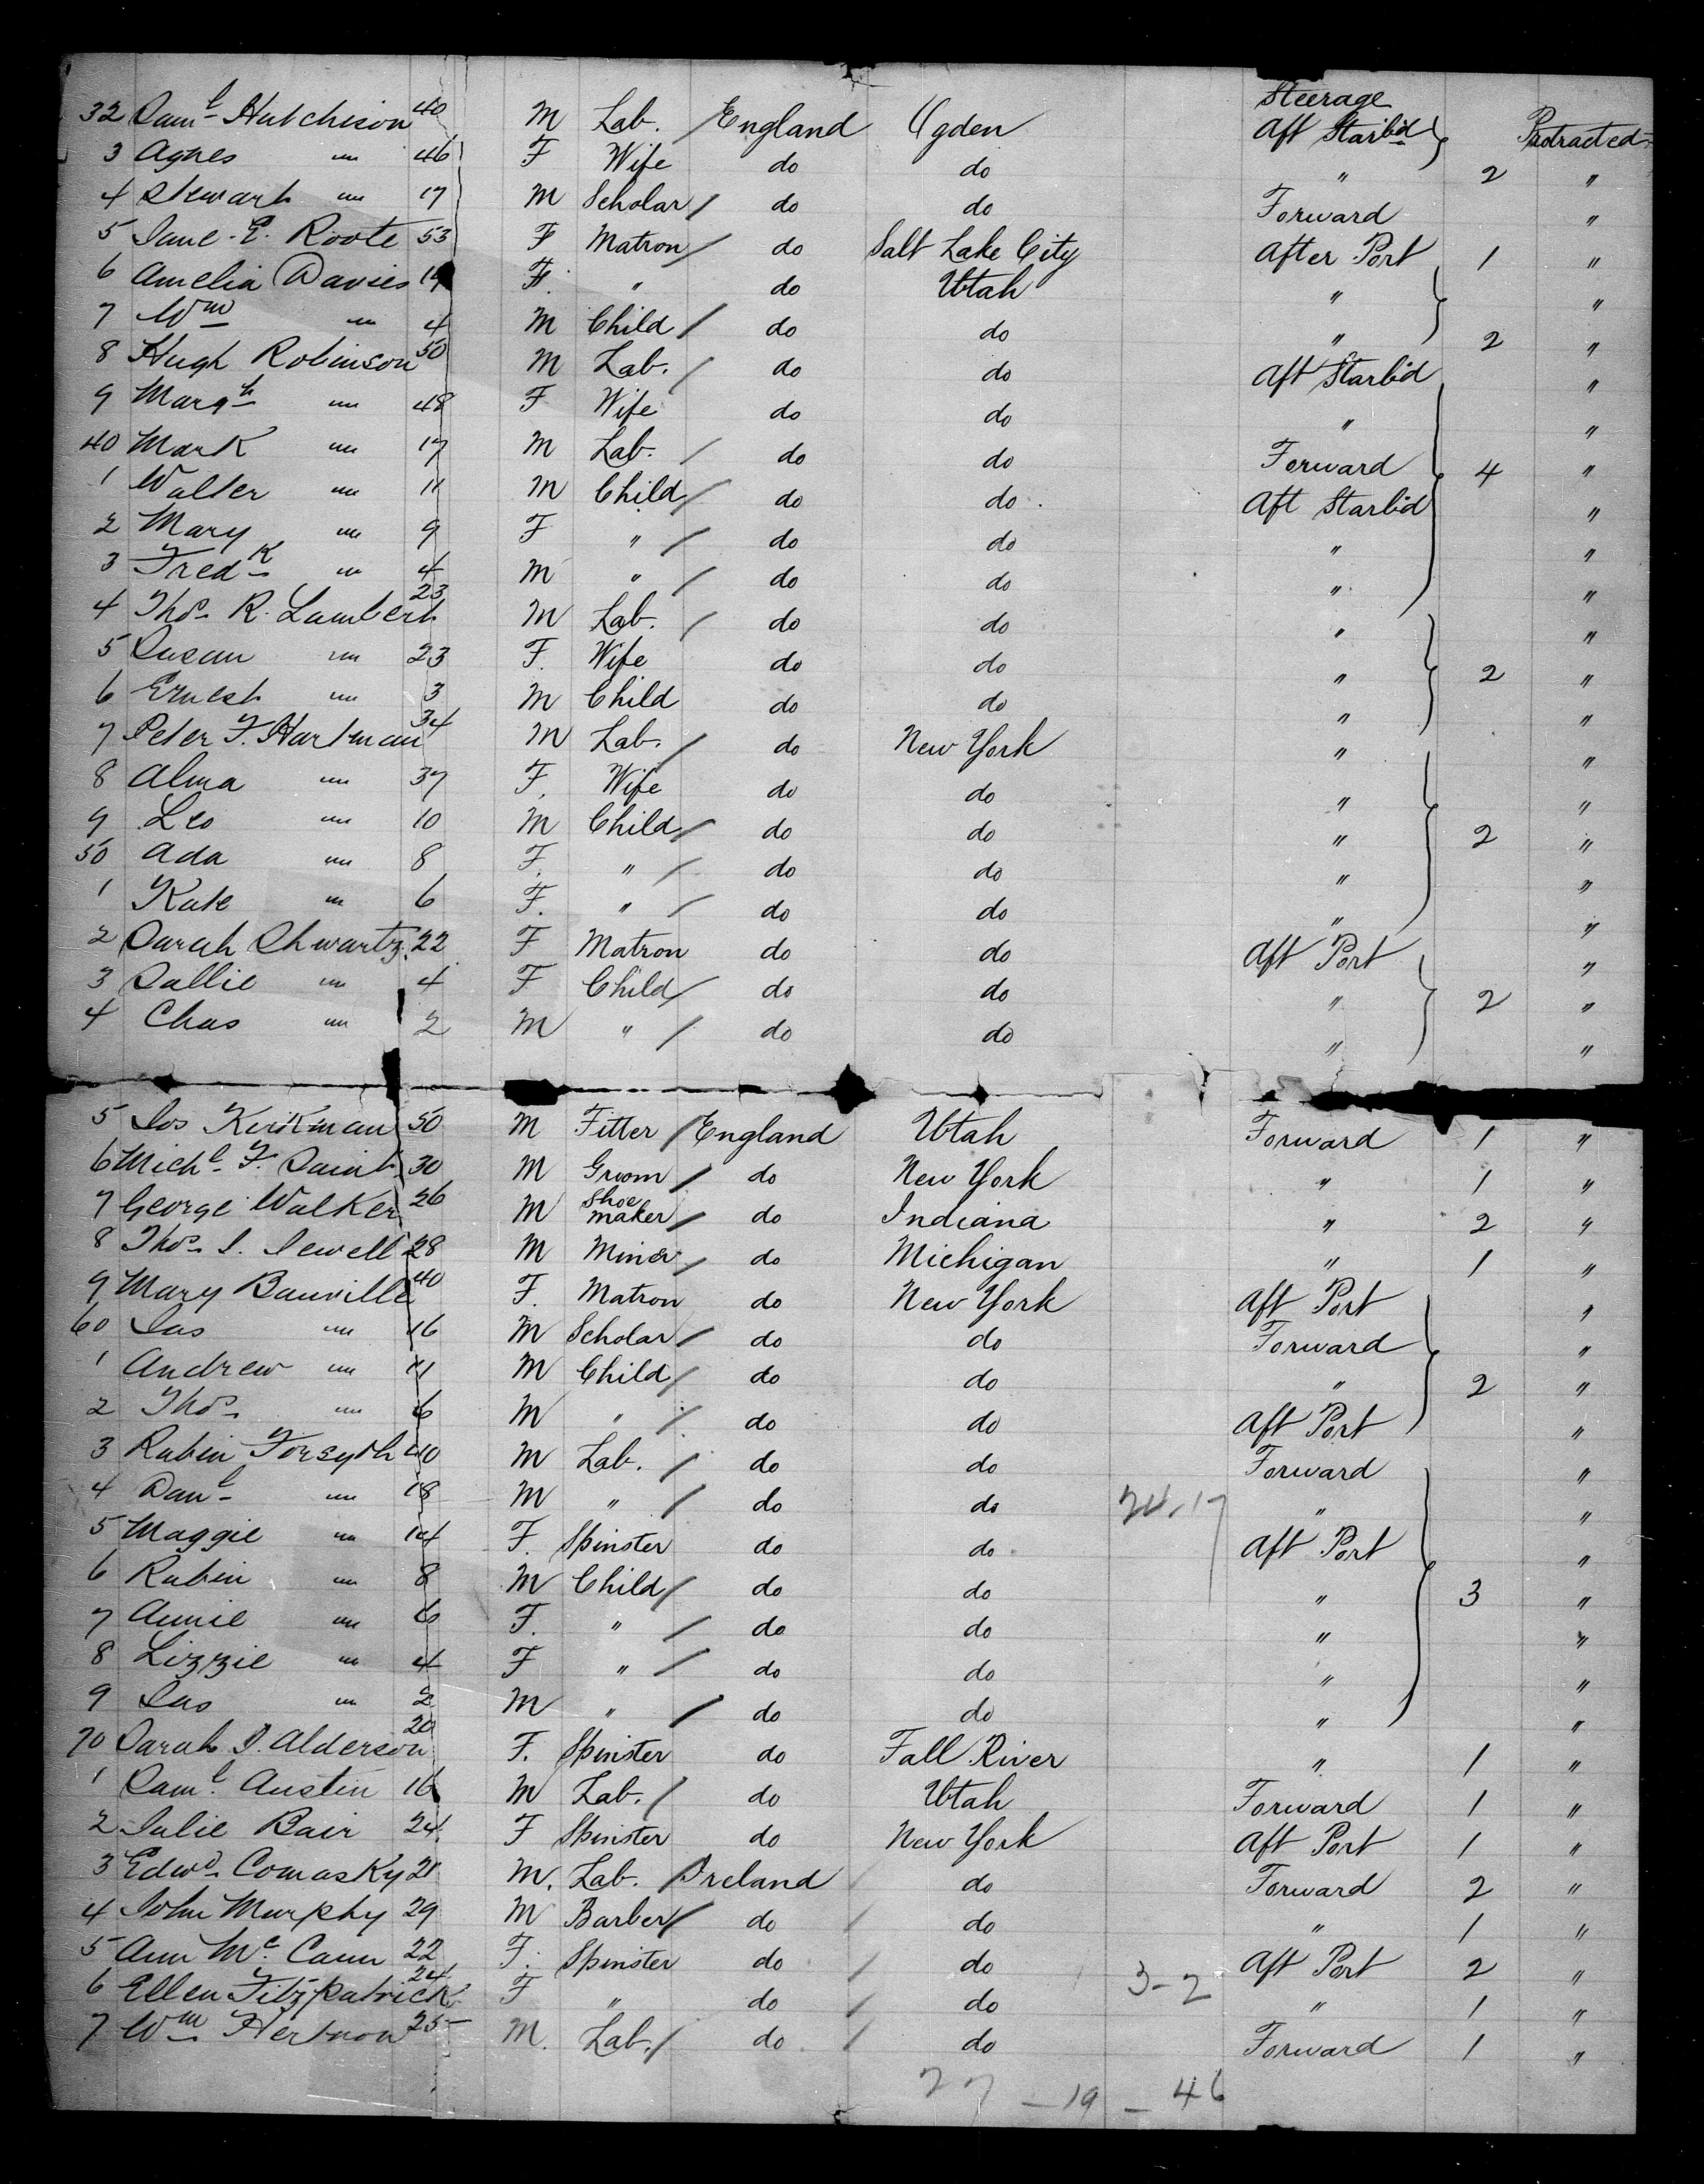 Steerage
32 Saml Hutchison 40 M Lab. / England Ogden Aft Starbd Protracted
3 Agnes " 46 F Wife do do " 2 "
4 Stewart " 17 M Scholar / do do Forward "
5 Jane E. Roote 53 F Matron / do Salt Lake City After Port 1 "
6 Amelia Davies 19 F. " do Utah " "
7 Wm " 4 M Child / do do " 2 "
8 Hugh Robinson 50 M Lab. / do do Aft Starbd "
9 Margt " 48 F Wife do do " "
40 Mark " 17 M Lab. / do do Forward 4 "
1 Walter " 11 M Child / do do Aft Starbd "
2 Mary " 9 F " / do do " "
3 Fredk " 4 M " / do do " "
4 Thos R. Lambert 23 M Lab. / do do " "
5 Susan " 23 F. Wife do do " 2 "
6 Ernest " 3 M Child do do " "
7 Peter F. Hartman 34 M Lab. / do New York " "
8 Alma " 37 F. Wife do do " "
9 Leo " 10 M Child / do do " 2 "
50 Ada " 8 F. " / do do " "
1 Kate " 6 F. " / do do " "
2 Sarah Shwartz 22 F Matron do do Aft Port "
3 Sallie " 4 F Child / do do " 2 "
4 Chas " 2 M " / do do " "
5 Jos Kirkman 50 M Fitter / England Utah Forward 1 "
6 Michl F. Saint 30 M Groom / do New York " 1 "
7 George Walker 26 M Shoe maker / do Indiana " 2 "
8 Thos J. Jewell 28 M Miner / do Michigan " 1 "
9 Mary Bauville 40 F. Matron do New York Aft Port "
60 Jas " 16 M Scholar / do do Forward "
1 Andrew " 11 M Child / do do " 2 "
2 Thos " 6 M " / do do Aft Port "
3 Rubin Forsyth 40 M Lab. / do do Forward "
4 Danl " 18 M " / do do 24-17 " "
5 Maggie " 14 F. Spinster do do Aft Port "
6 Rubin " 8 M Child / do do " 3 "
7 Annie " 6 F. " / do do " "
8 Lizzie " 4 F " / do do " "
9 Jas " 2 M " / do do " "
70 Sarah J. Alderson 20 F. Spinster do Fall River " 1 "
1 Saml Austin 16 M Lab. / do Utah Forward 1 "
2 Julie Bair 24 F Spinster do New York Aft Port 1 "
3 Edwd Comasky 21 M. Lab. / Ireland do Forward 2 "
4 John Murphy 29 M Barber / do / do " 1 "
5 Ann Mc Cann 22 F. Spinster do / do Aft Port 2 "
6 Ellen Fitzpatrick 24 F " do / do 3-2 " 1 "
7 Wm 25 M. Lab. / do / do Forward 1 "
27 - 19 - 46